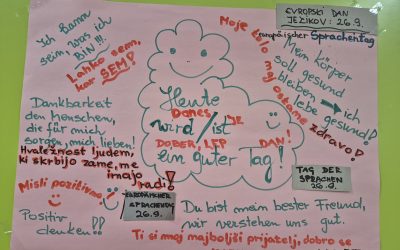 EVROPSKI DAN
JEZIKOV: 26.9.
Europäischer Sprachentag
Ich kann
sein, was ich
BIN!!!
Lahko sem,
kar SEM!
Moje telo naj ostane zdravo!
Mein Körper
soll gesund
bleiben → ich
lebe gesund!
Heute
DANES JE
wird/ist
DOBER, LEP DAN!
ein guter Tag!
Dankbarkat
den Menschen,
die für mich
sorgen, mich lieben!
Hvaležnost ljudem,
ki skrbijo zame, me
imajo
radi!
Misli pozitivno
Positiv
denken!!
EUROPÄISCHER
SPRACHENTAG
26.9.
TAG DER
SPRACHEN
26.9.
Du bist mein bester Freund,
wir verstehen uns gut.
Ti si moj najboljši prijatelj, dobro se